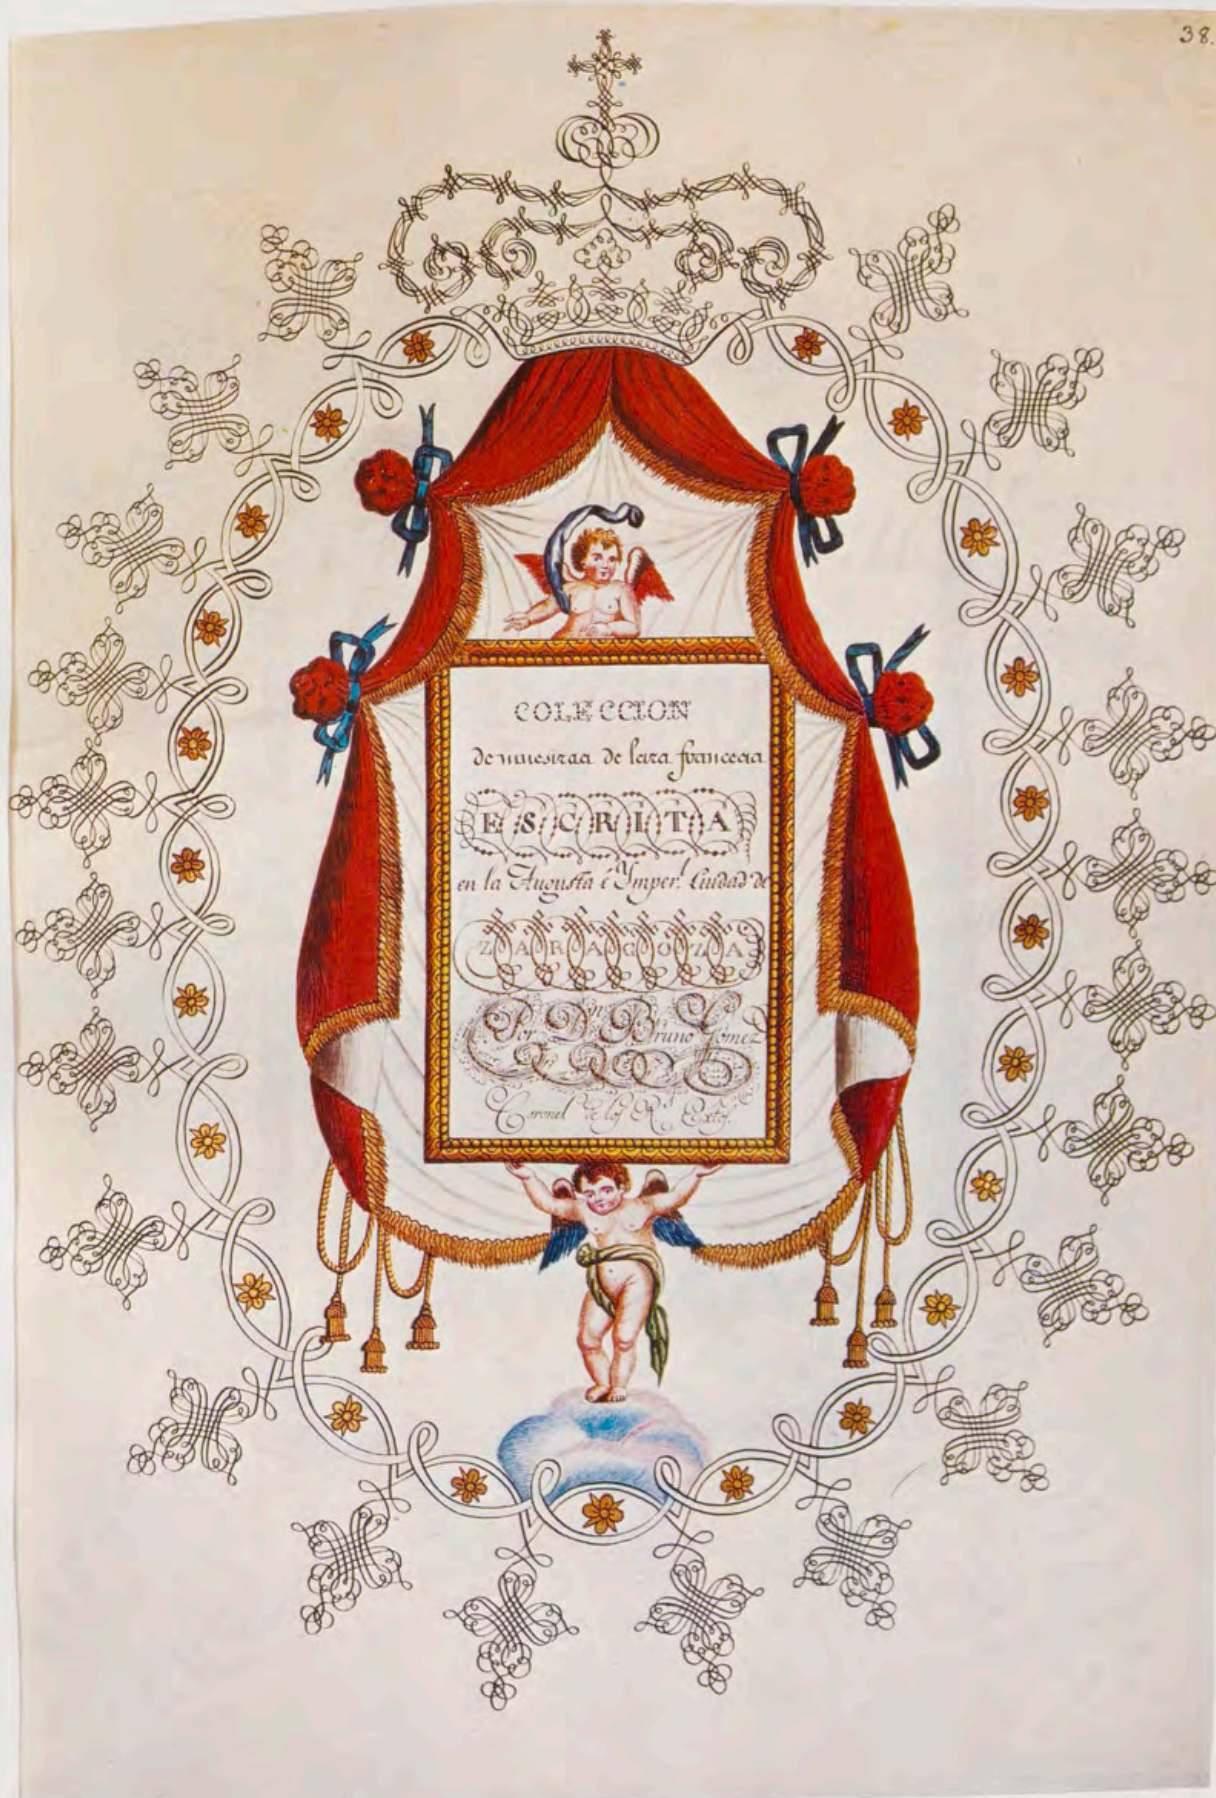 38.
COLECCION
de muestras de letra francesa
ESCRITA
en la Augusta é Ymper.l Ciudad de
ZARAGOZA
Por Dn. Bruno Gomez
Coronel de los R.s Extos.